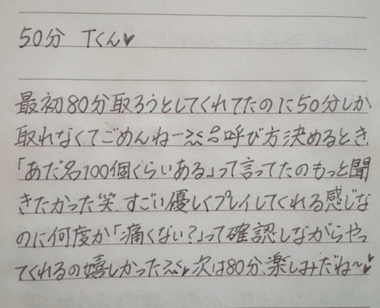 50分 Tくん♥
最初80分取ろうとしてくれてたのに50分しか
取れなくてごめんねー 呼び方決めるとき
「あだ名100個くらいある」って言ってたのもっと聞
きたかった笑 すごい優しくプレイしてくれる感じな
のに何度か「痛くない?」って確認しながらやっ
てくれるの嬉しかった 次は80分、楽しみだね〜♥